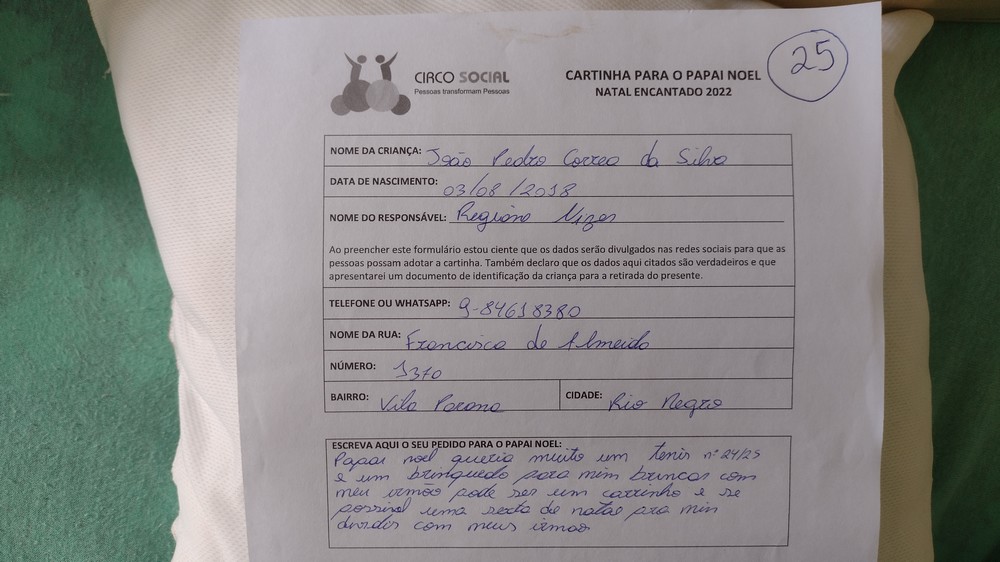 CIRCO SOCIAL
Pessoas transformam Pessoas
CARTINHA PARA O PAPAI NOEL
NATAL ENCANTADO 2022
25
NOME DA CRIANÇA: João Pedro Correa da Silva
DATA DE NASCIMENTO: 03/08/2018
NOME DO RESPONSÁVEL: Regiane
Ao preencher este formulário estou ciente que os dados serão divulgados nas redes sociais para que as
pessoas possam adotar a cartinha. Também declaro que os dados aqui citados são verdadeiros e que
apresentarei um documento de identificação da criança para a retirada do presente.
TELEFONE OU WHATSAPP: 9-84618380
NOME DA RUA: Francisca de Almeida
NÚMERO: 1370
BAIRRO: Vila Parana CIDADE: Rio Negro
ESCREVA AQUI O SEU PEDIDO PARA O PAPAI NOEL:
Papai noel queria muito um tenis nº 24/25
e um brinquedo para mim brincar com
meu irmão pode ser um carrinho e se
possivel uma sexta de natal pra min
dividir com meus irmao